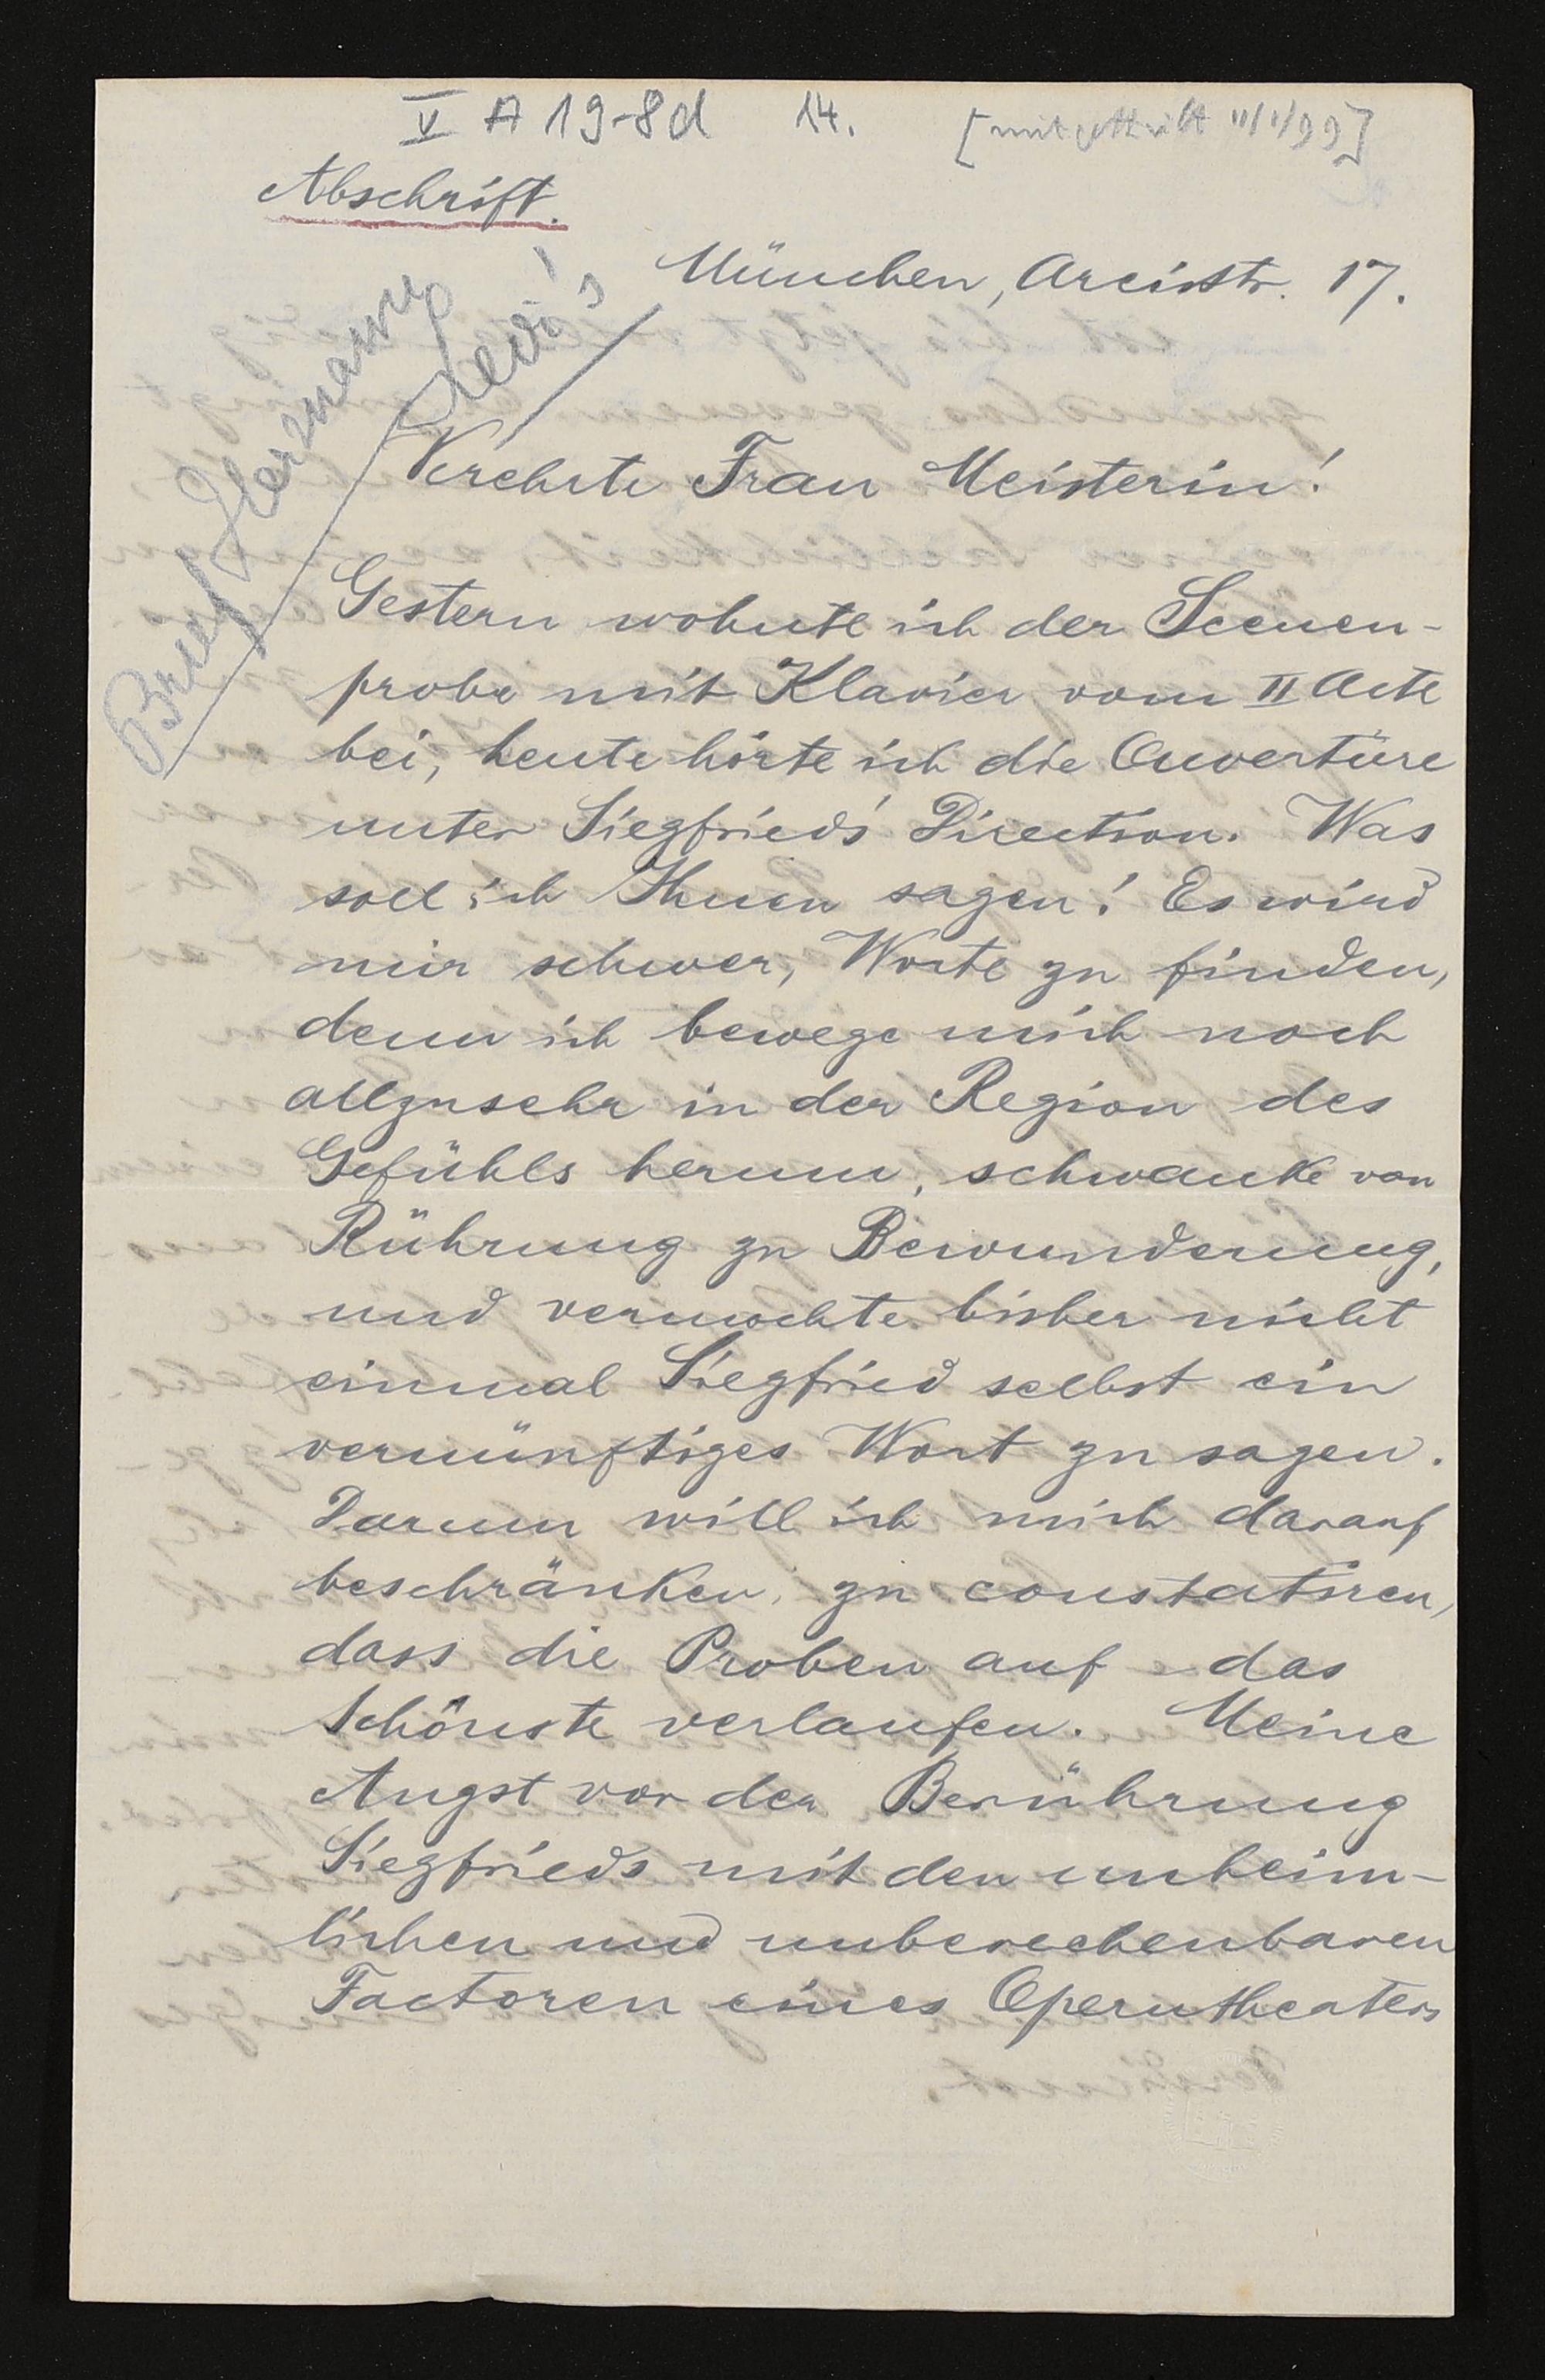 V A 19-8d 14. [mitgetheilt 11/1/99]
Abschrift.
Brief Hermann Levi's
München, Arcisstr. 17.
Verehrte Frau Meisterin!
Gestern wohnte ich der Scenen-
probe mit Klavier vom II Acte
bei, heute hörte ich die Ouvertüre
unter Siegfried's Direction. Was
soll ich Ihnen sagen! Es wird
mir schwer, Worte zu finden,
denn ich bewege mich noch
allzusehr in der Region des
Gefühls herum, schwanke von
Rührung zu Bewunderung,
und vermochte bisher nicht
einmal Siegfried selbst ein
vernünftiges Wort zu sagen.
Darum will ich mich darauf
beschränken, zu constatiren,
dass die Proben auf das
Schönste verlaufen. Meine
Angst vor der Berührung
Siegfrieds mit den unheim-
lichen und unberechenbaren
Factoren eines Operntheaters